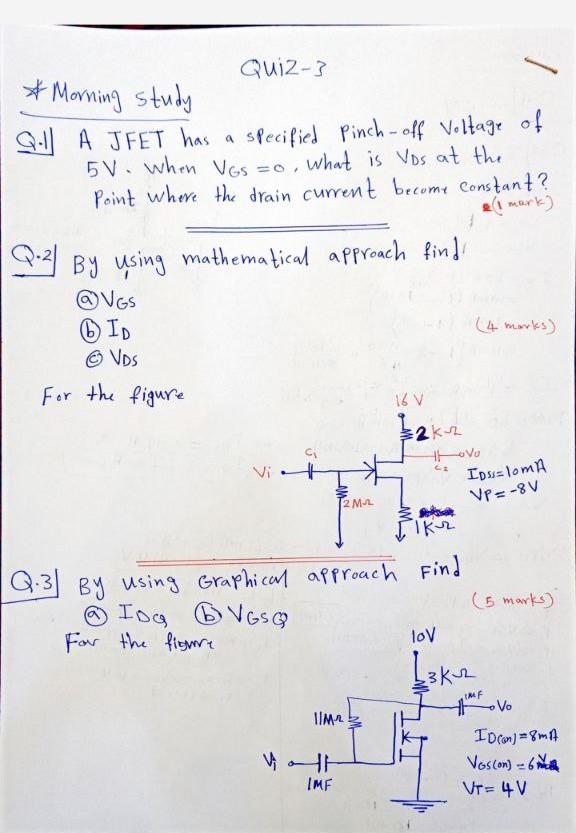 Quiz-3
* Morning study
Q.1 A JFET has a specified Pinch-off Voltage of
5V. when VGS = 0, what is VDS at the
Point where the drain current become constant?
(1 mark)
Q.2 By using mathematical approach find
(a) VGS
(b) ID
(c) VDS
(4 marks)
For the figure
16 V
2 KΩ
C1
Vo
C2
Vi
IDSS=10mA
VP = -8V
2MΩ
1KΩ
Q.3 By using Graphical approach Find
(a) IDQ (b) VGSQ
(5 marks)
For the figure
10V
3KΩ
1MF
Vo
11MΩ
ID(on) = 8mA
Vi
VGS(on) = 6V
1MF
VT = 4V